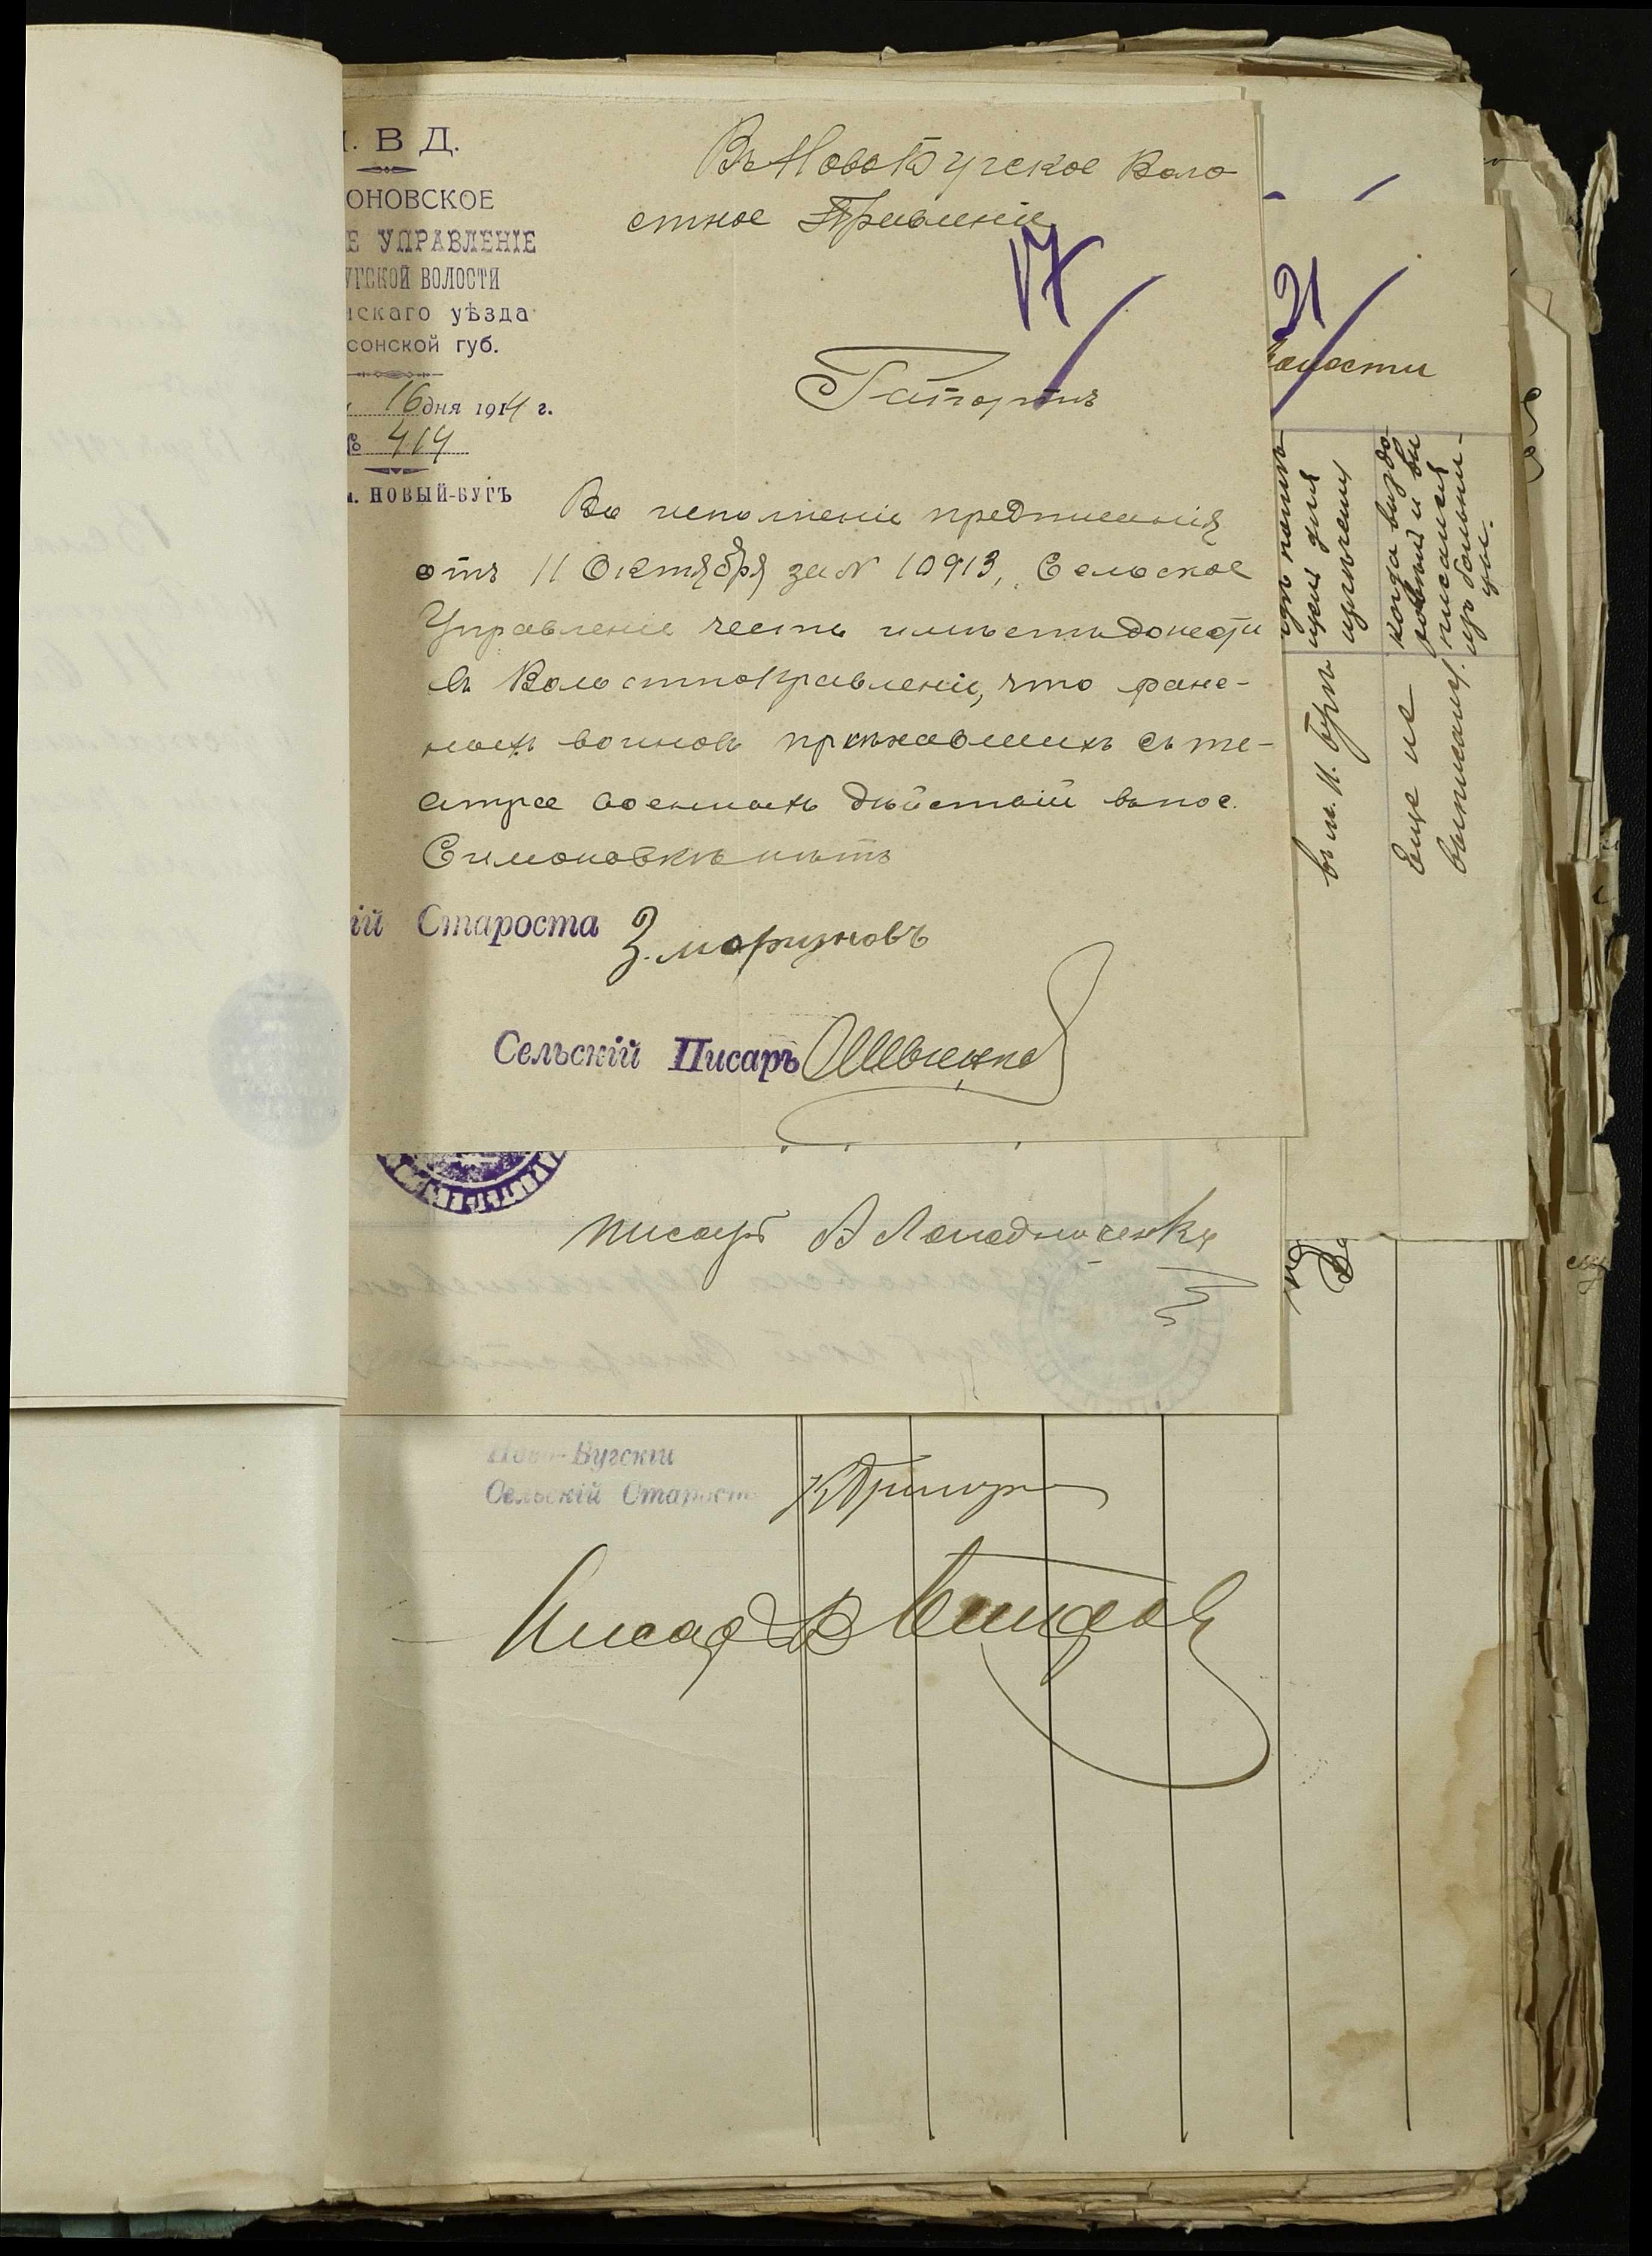 . В Д.
ОНОВСКОЕ
Е УПРАВЛЕНІЕ
УГСКОЙ ВОЛОСТИ
скаго уѣзда
сонской губ.
16 дня 1914 г.
№ 414
м. НОВЫЙ-БУГЪ
Въ НовоБугское Воло
стное Правленіе
17
Рапортъ
Во исполненіе предписанія
отъ 11 Октября за № 10913, Сельское
Управленіе честь имѣетъ донести
въ Волостное Правленіе, что ране-
ныхъ воиновъ пріѣхавшихъ съ те-
атра военныхъ дѣйствій въ пос.
Симоновкѣ нѣтъ
ій Староста З. моризновъ
Сельскій Писарь Шевченко
21
волости
когда выздо-
ровѣлъ и вы
писался
изъ больни-
цы.
въ м. Н. Бугъ
Еще не
выписался.
писарь А Лападниченко
Ново-Бугскій
Сельскій Староста
Писарь В